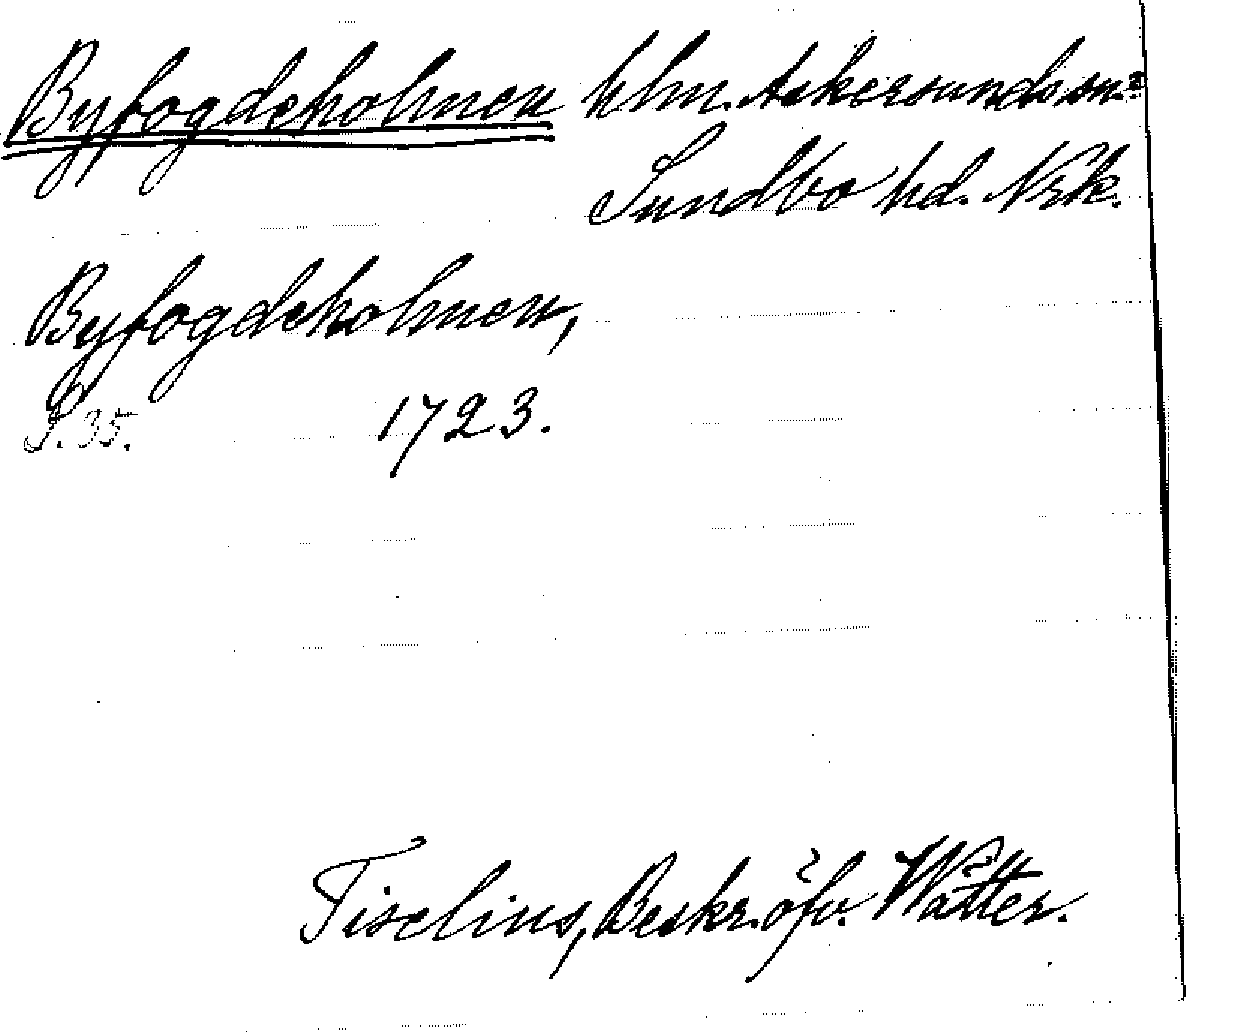 Byfogdeholmen hlm. Askersunds sn.?
Sundbo hd. Nrk.
Byfogdeholmen,
S. 35. 1723.
Tiselius, Beskr. öfv. Wätter.